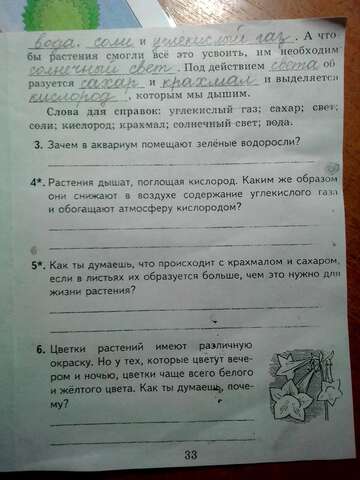 вода, соли и углекислый газ. А что-
бы растения смогли всё это усвоить, им необходим
солнечный свет. Под действием света об
разуется сахар и крахмал и выделяется
кислород, которым мы дышим.
Слова для справок: углекислый газ; сахар; свет;
соли; кислород; крахмал; солнечный свет; вода.
3. Зачем в аквариум помещают зелёные водоросли?
4*. Растения дышат, поглощая кислород. Каким же образом
они снижают в воздухе содержание углекислого газа
и обогащают атмосферу кислородом?
5*. Как ты думаешь, что происходит с крахмалом и сахаром,
если в листьях их образуется больше, чем это нужно для
жизни растения?
6. Цветки растений имеют различную
окраску. Но у тех, которые цветут вече-
ром и ночью, цветки чаще всего белого
и жёлтого цвета. Как ты думаешь, поче-
му?
33